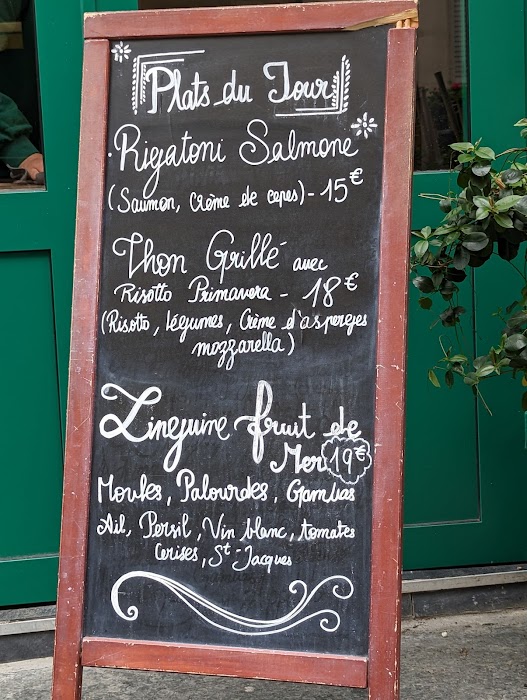 Plats du Jour
Rigatoni Salmone
(Saumon, Crème de cepes) - 15€
Thon Grillé avec
Risotto Primavera - 18€
(Risotto, légumes, Crème d'asperges
mozzarella)
Linguine fruit de
Mer 19€
Moules, Palourdes, Gambas
Ail, Persil, Vin blanc, tomates
Cerises, St-Jacques